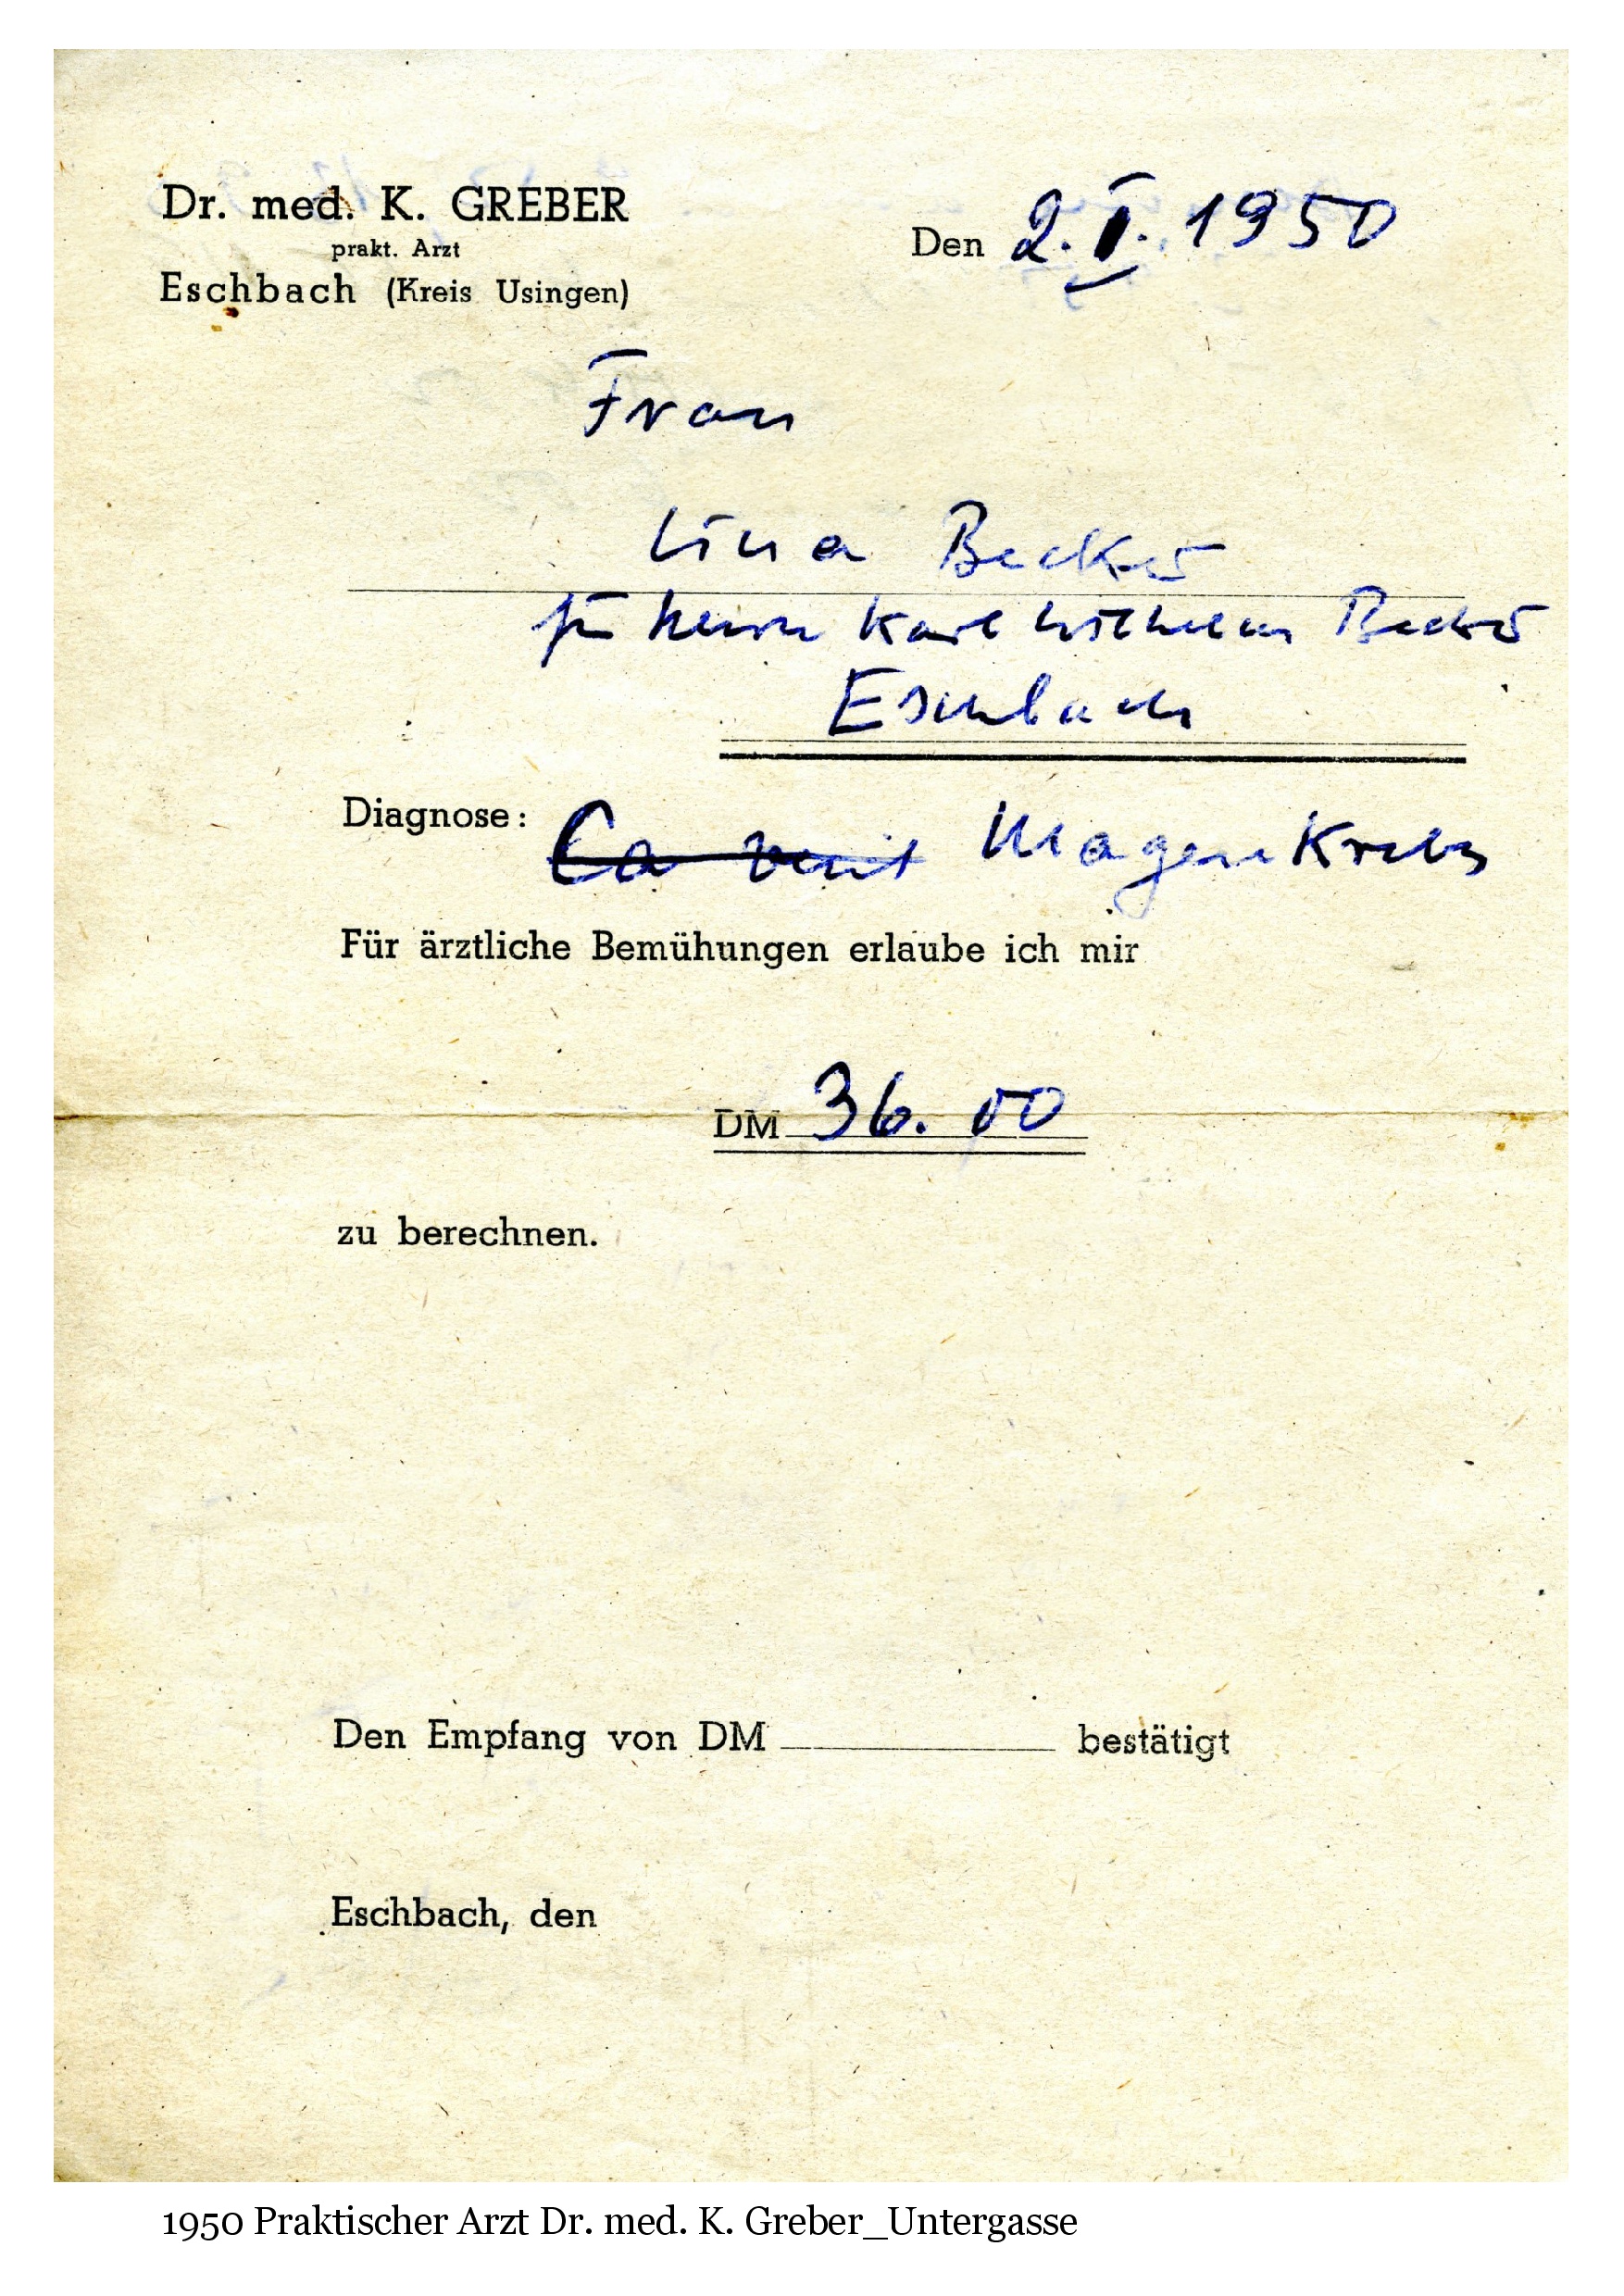 Dr. med. K. GREBER
prakt. Arzt
Eschbach (Kreis Usingen)
Den 2. I. 1950
Frau
Lina Becker
für Herrn Karl Wilhelm Becker
Eschbach
Diagnose: Magenkrebs
Für ärztliche Bemühungen erlaube ich mir
DM 36.00
zu berechnen.
Den Empfang von DM bestätigt
Eschbach, den
1950 Praktischer Arzt Dr. med. K. Greber_Untergasse